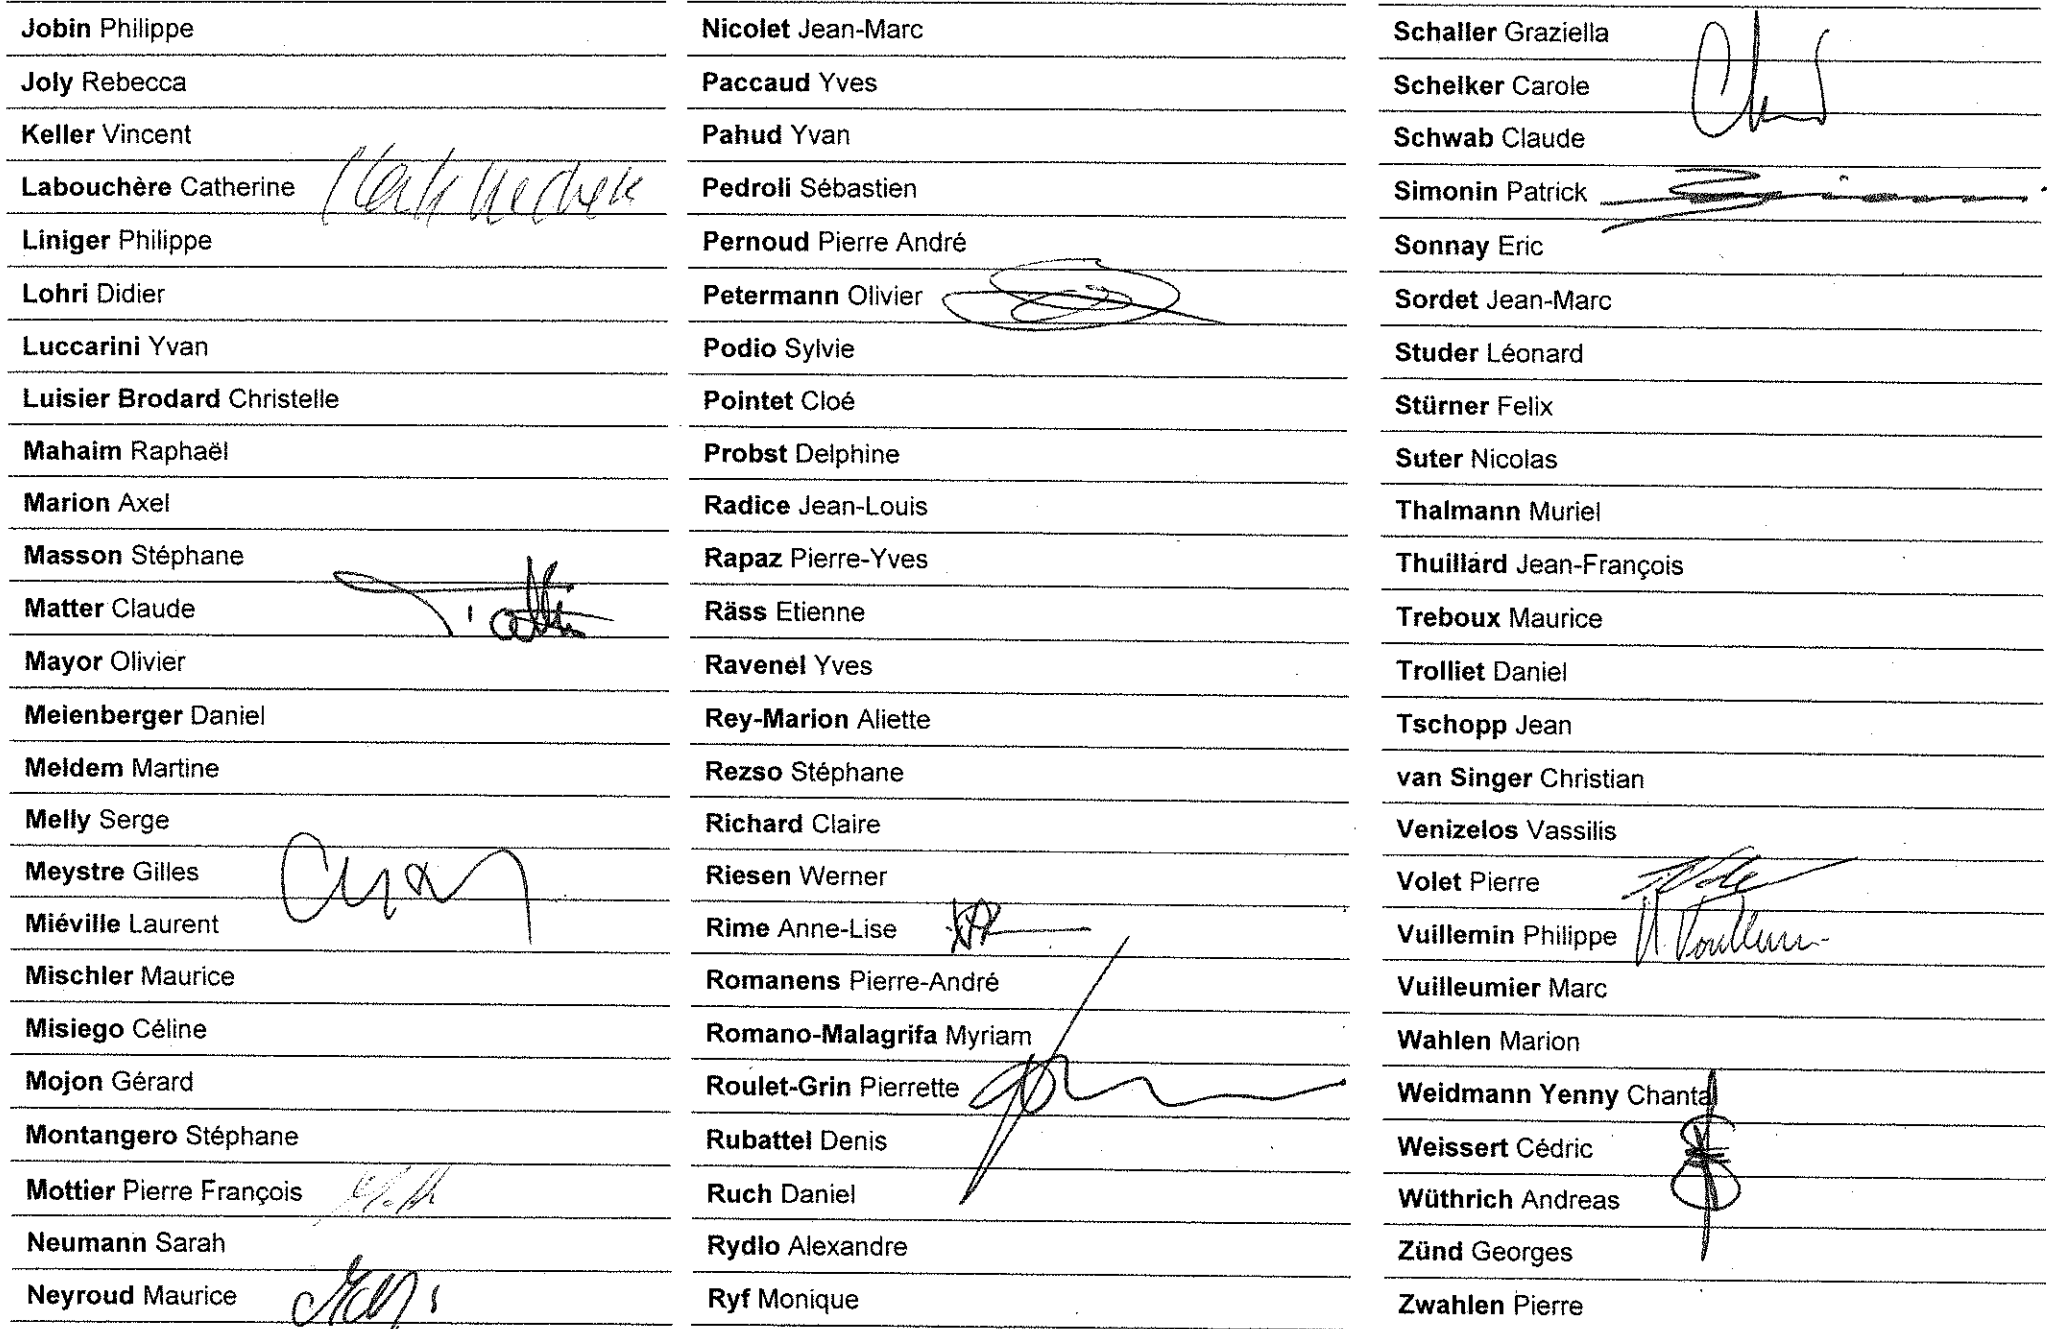 Jobin Philippe
Joly Rebecca
Keller Vincent
Labouchère Catherine
Liniger Philippe
Lohri Didier
Luccarini Yvan
Luisier Brodard Christelle
Mahaim Raphaël
Marion Axel
Masson Stéphane
Matter Claude
Mayor Olivier
Meienberger Daniel
Meldem Martine
Melly Serge
Meystre Gilles
Miéville Laurent
Mischler Maurice
Misiego Céline
Mojon Gérard
Montangero Stéphane
Mottier Pierre François
Neumann Sarah
Neyroud Maurice
Nicolet Jean-Marc
Paccaud Yves
Pahud Yvan
Pedroli Sébastien
Pernoud Pierre André
Petermann Olivier
Podio Sylvie
Pointet Cloé
Probst Delphine
Radice Jean-Louis
Rapaz Pierre-Yves
Räss Etienne
Ravenel Yves
Rey-Marion Aliette
Rezso Stéphane
Richard Claire
Riesen Werner
Rime Anne-Lise
Romanens Pierre-André
Romano-Malagrifa Myriam
Roulet-Grin Pierrette
Rubattel Denis
Ruch Daniel
Rydlo Alexandre
Ryf Monique
Schaller Graziella
Schelker Carole
Schwab Claude
Simonin Patrick
Sonnay Eric
Sordet Jean-Marc
Studer Léonard
Stürner Felix
Suter Nicolas
Thalmann Muriel
Thuillard Jean-François
Treboux Maurice
Trolliet Daniel
Tschopp Jean
van Singer Christian
Venizelos Vassilis
Volet Pierre
Vuillemin Philippe
Vuilleumier Marc
Wahlen Marion
Weidmann Yenny Chantal
Weissert Cédric
Wüthrich Andreas
Zünd Georges
Zwahlen Pierre